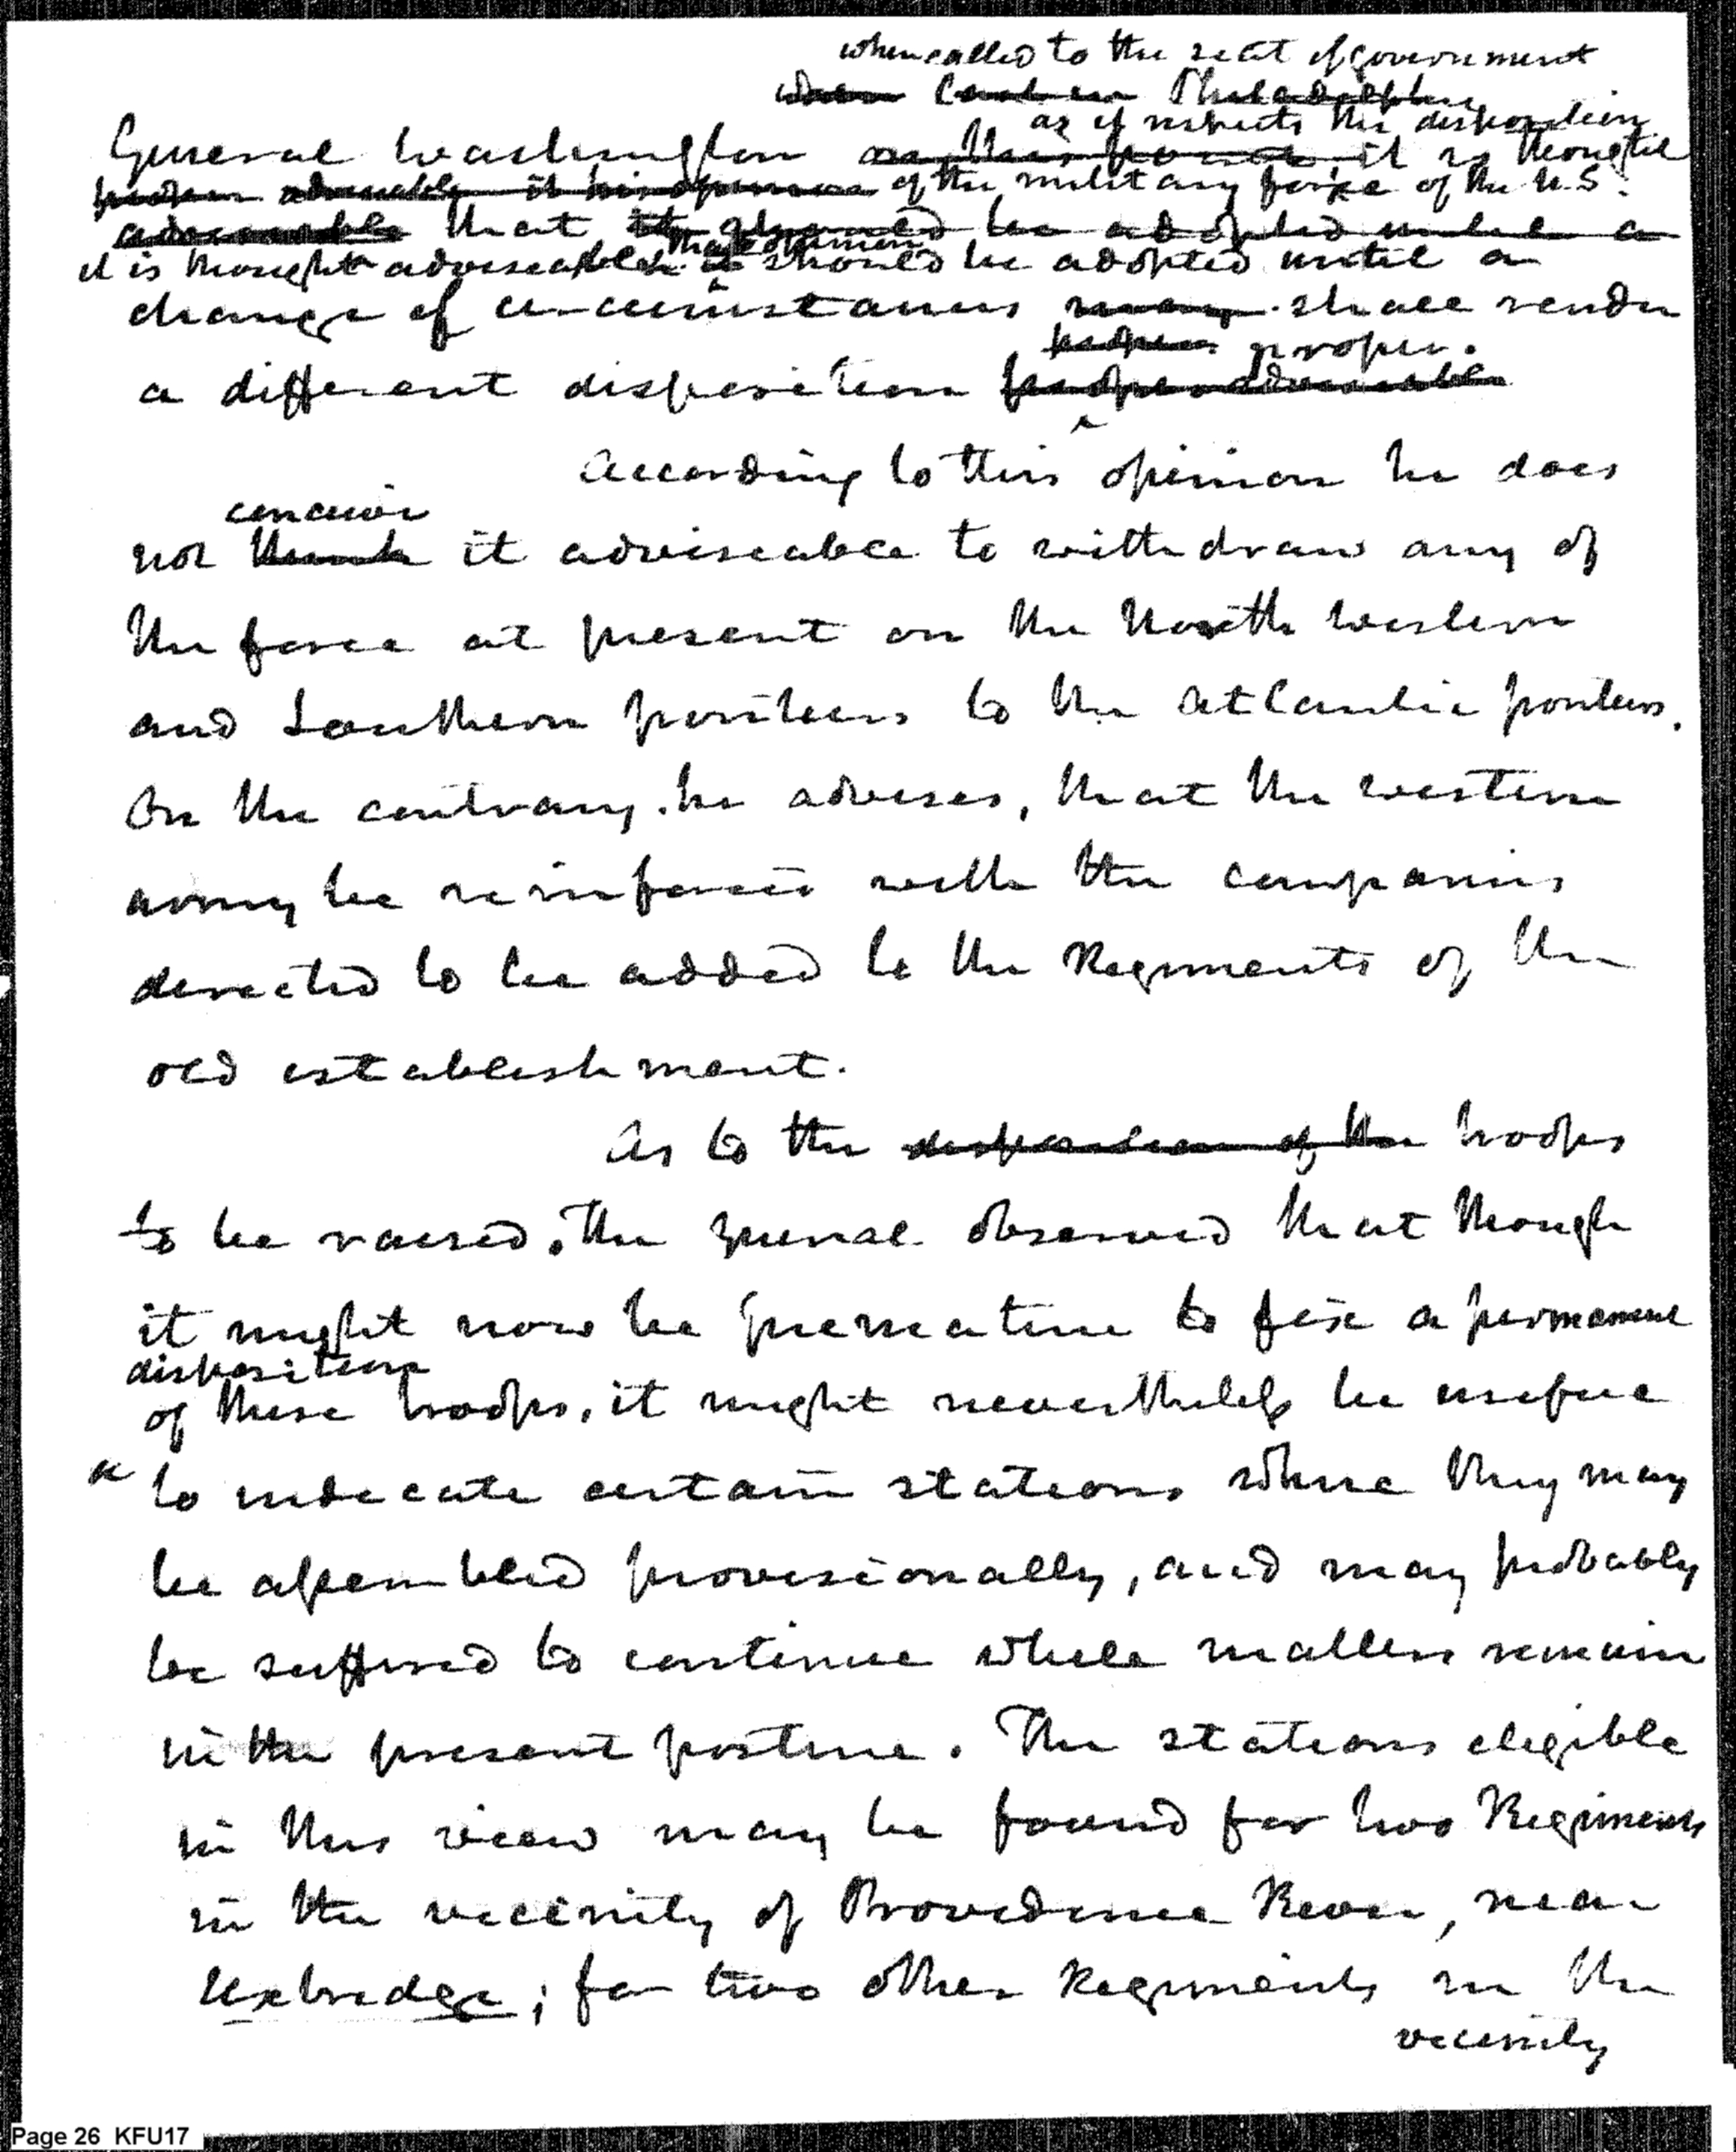 when called to the seat of government
when last in Philadelphia
as it respects the disposition
General Washington on this point it is thought
proper adviseable it his opinion of the military force of the U.S.
adviseable that it should be adopted until a
that opinion
it is thought adviseable it should be adopted until a
change of circumstances may shall render
proper proper.
a different disposition proper adviseable
According to this opinion he does
conceive
not think it adviseable to withdraw any of
the force at present on the North western
and Southern frontiers to the atlantic frontiers.
On the contrary. he advises, that the western
army be reinforced with the companies
directed to be added to the Regiments of the
old establishment.
As to the disposition of the troops
to be raised. The general observed that though
it might now be premature to fix a permanent
disposition
of these troops, it might nevertheless be useful
to indicate certain stations where they may
be assembled provisionally, and may probably
be suffered to continue while matters remain
in the present posture. The stations elegible
in this view may be found for two Regiments
in the vicinity of Providence River, near
Uxbridge; for two other Regiments in the
vicinity
Page 26 KFU17